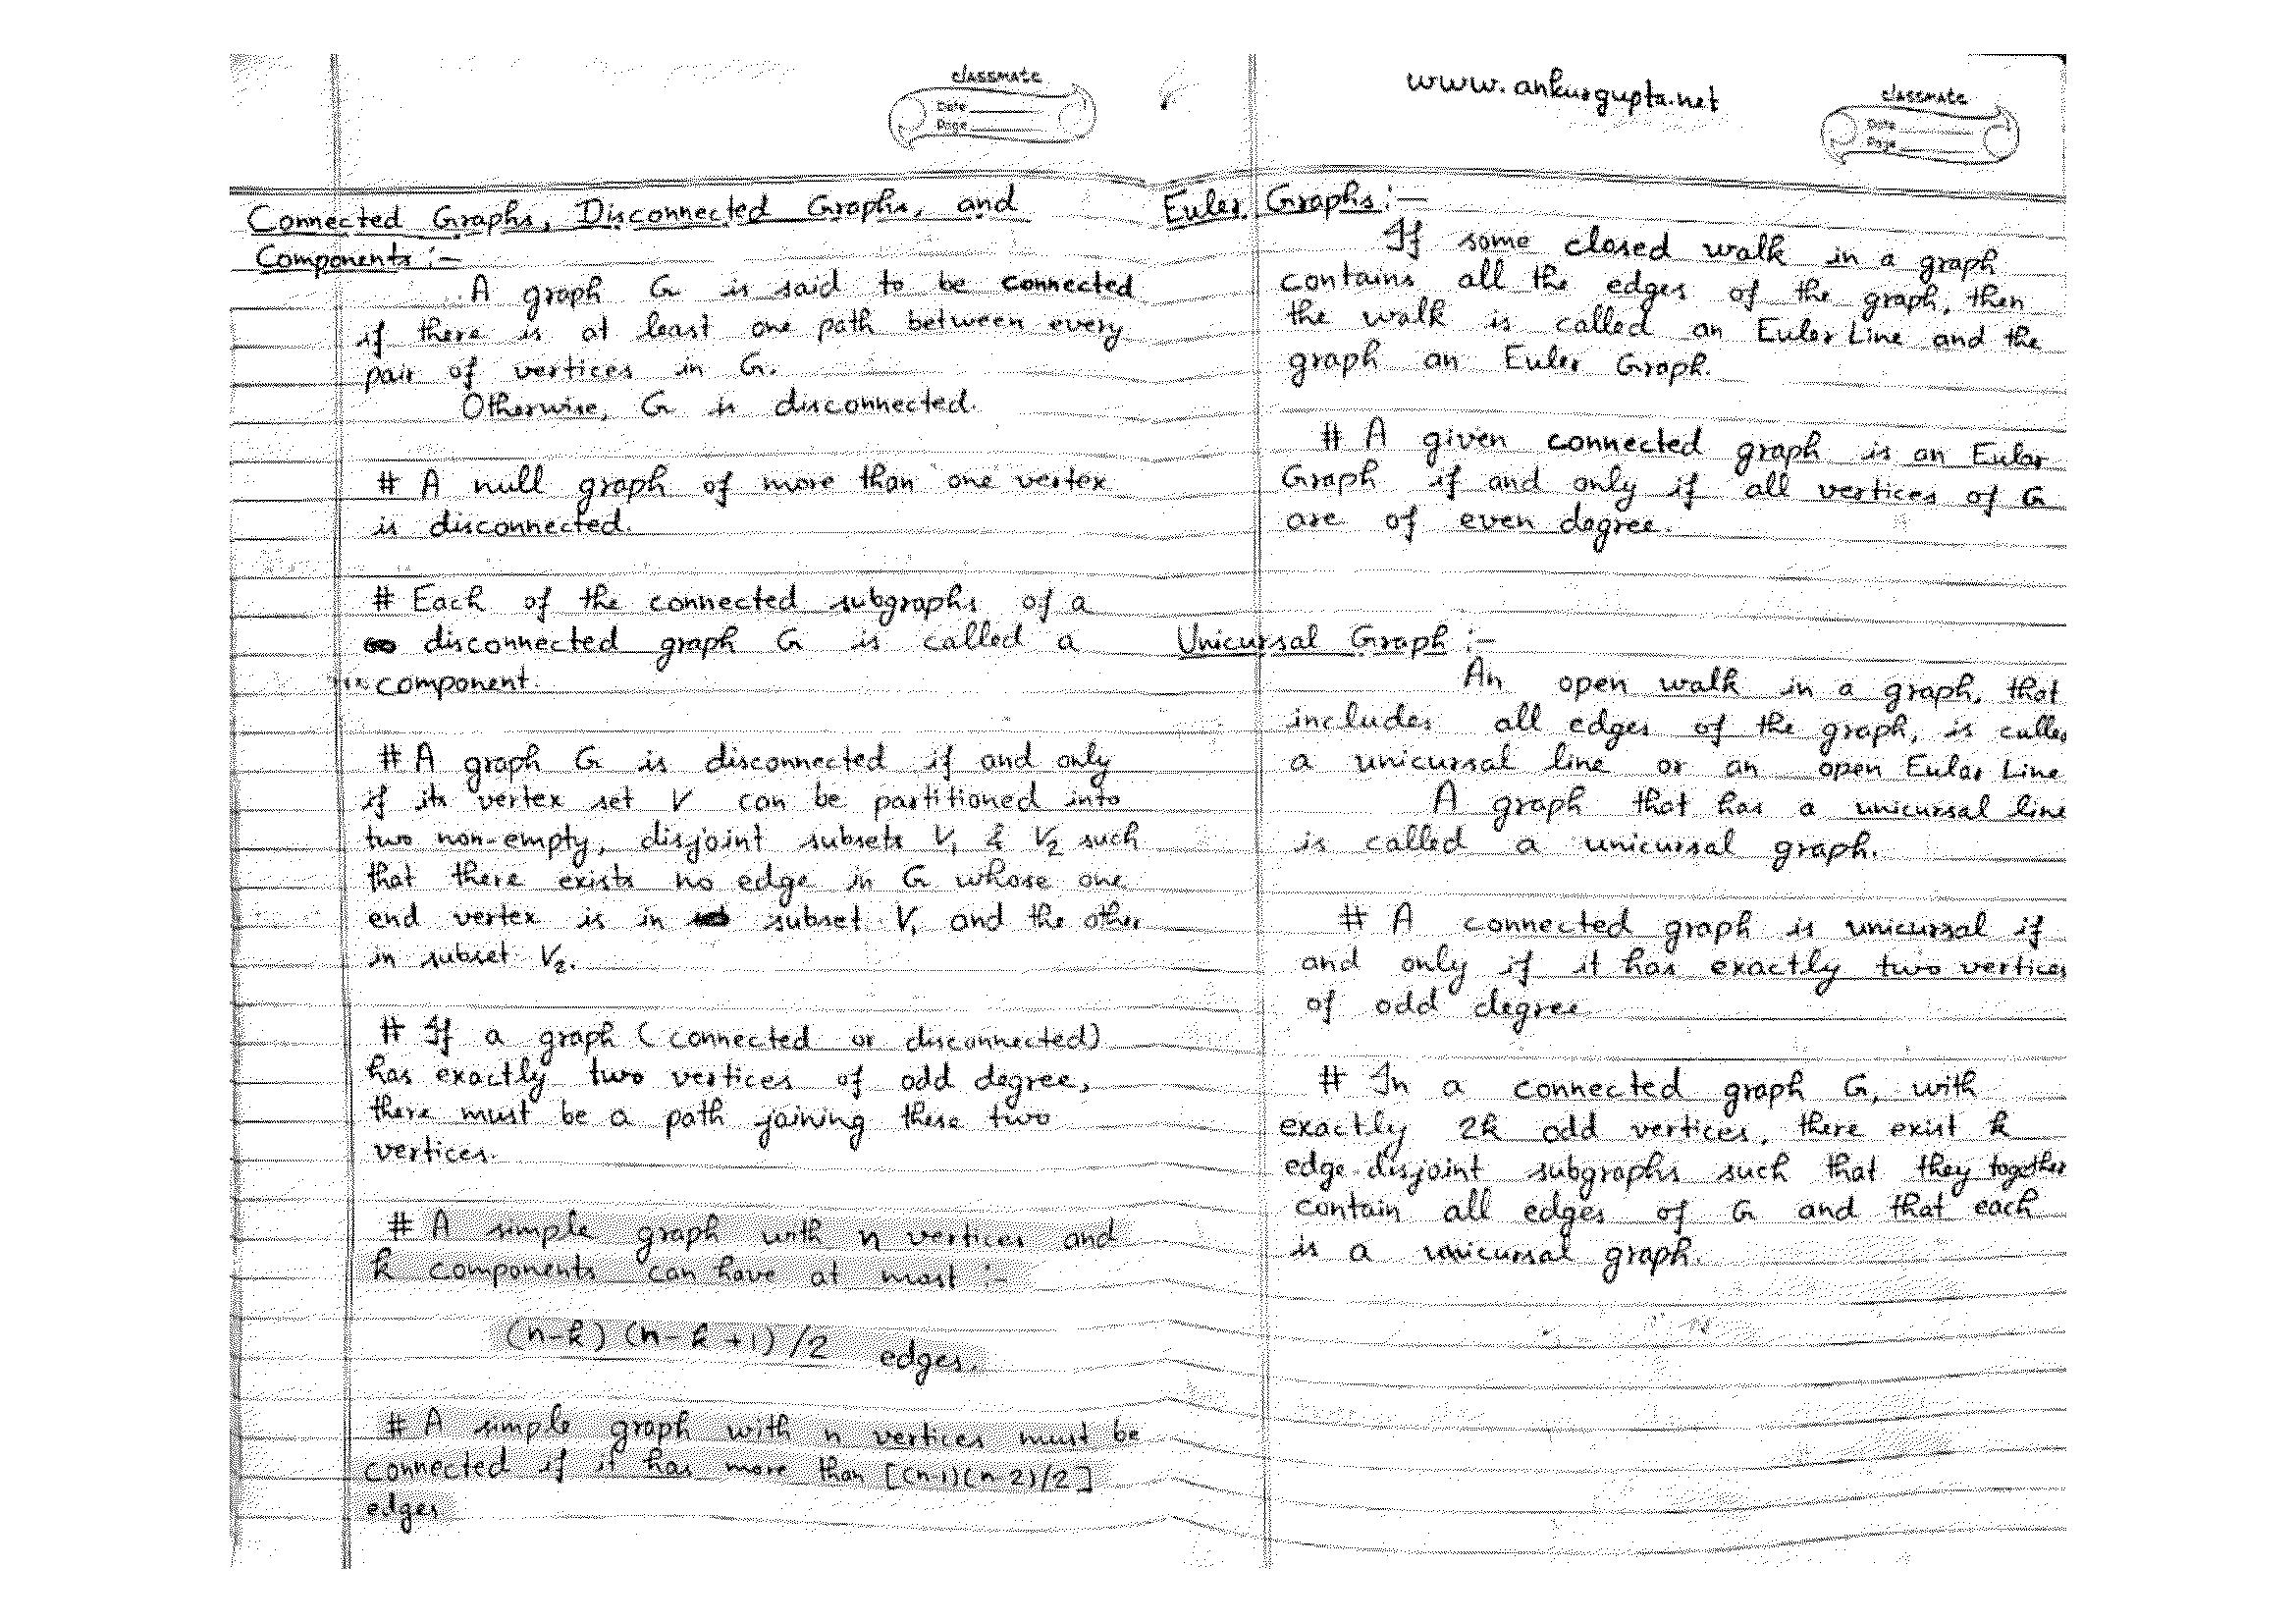 classmate
Date
Page
Connected Graphs, Disconnected Graphs, and
Components :-
A graph G is said to be connected
if there is at least one path between every
pair of vertices in G.
Otherwise, G is disconnected.
# A null graph of more than one vertex
is disconnected.
# Each of the connected subgraphs of a
disconnected graph G is called a
component.
# A graph G is disconnected if and only
if its vertex set V can be partitioned into
two non-empty, disjoint subsets V1 & V2 such
that there exists no edge in G whose one
end vertex is in subset V1 and the other
in subset V2.
# If a graph (connected or disconnected)
has exactly two vertices of odd degree,
there must be a path joining these two
vertices.
# A simple graph with n vertices and
k components can have at most :-
(n-k) (n-k+1)/2 edges.
# A simple graph with n vertices must be
connected if it has more than [(n-1)(n-2)/2]
edges
www.ankurgupta.net
classmate
Date
Page
Euler Graphs :-
If some closed walk in a graph
contains all the edges of the graph, then
the walk is called an Euler Line and the
graph an Euler Graph.
# A given connected graph is an Euler
Graph if and only if all vertices of G
are of even degree.
Unicursal Graph :-
An open walk in a graph, that
includes all edges of the graph, is
a unicursal line or an open Euler Line
A graph that has a unicursal line
is called a unicursal graph.
# A connected graph is unicursal if
and only if it has exactly two vertices
of odd degree
# In a connected graph G, with
exactly 2k odd vertices, there exist k
edge-disjoint subgraphs such that they together
contain all edges of G and that each
is a unicursal graph.